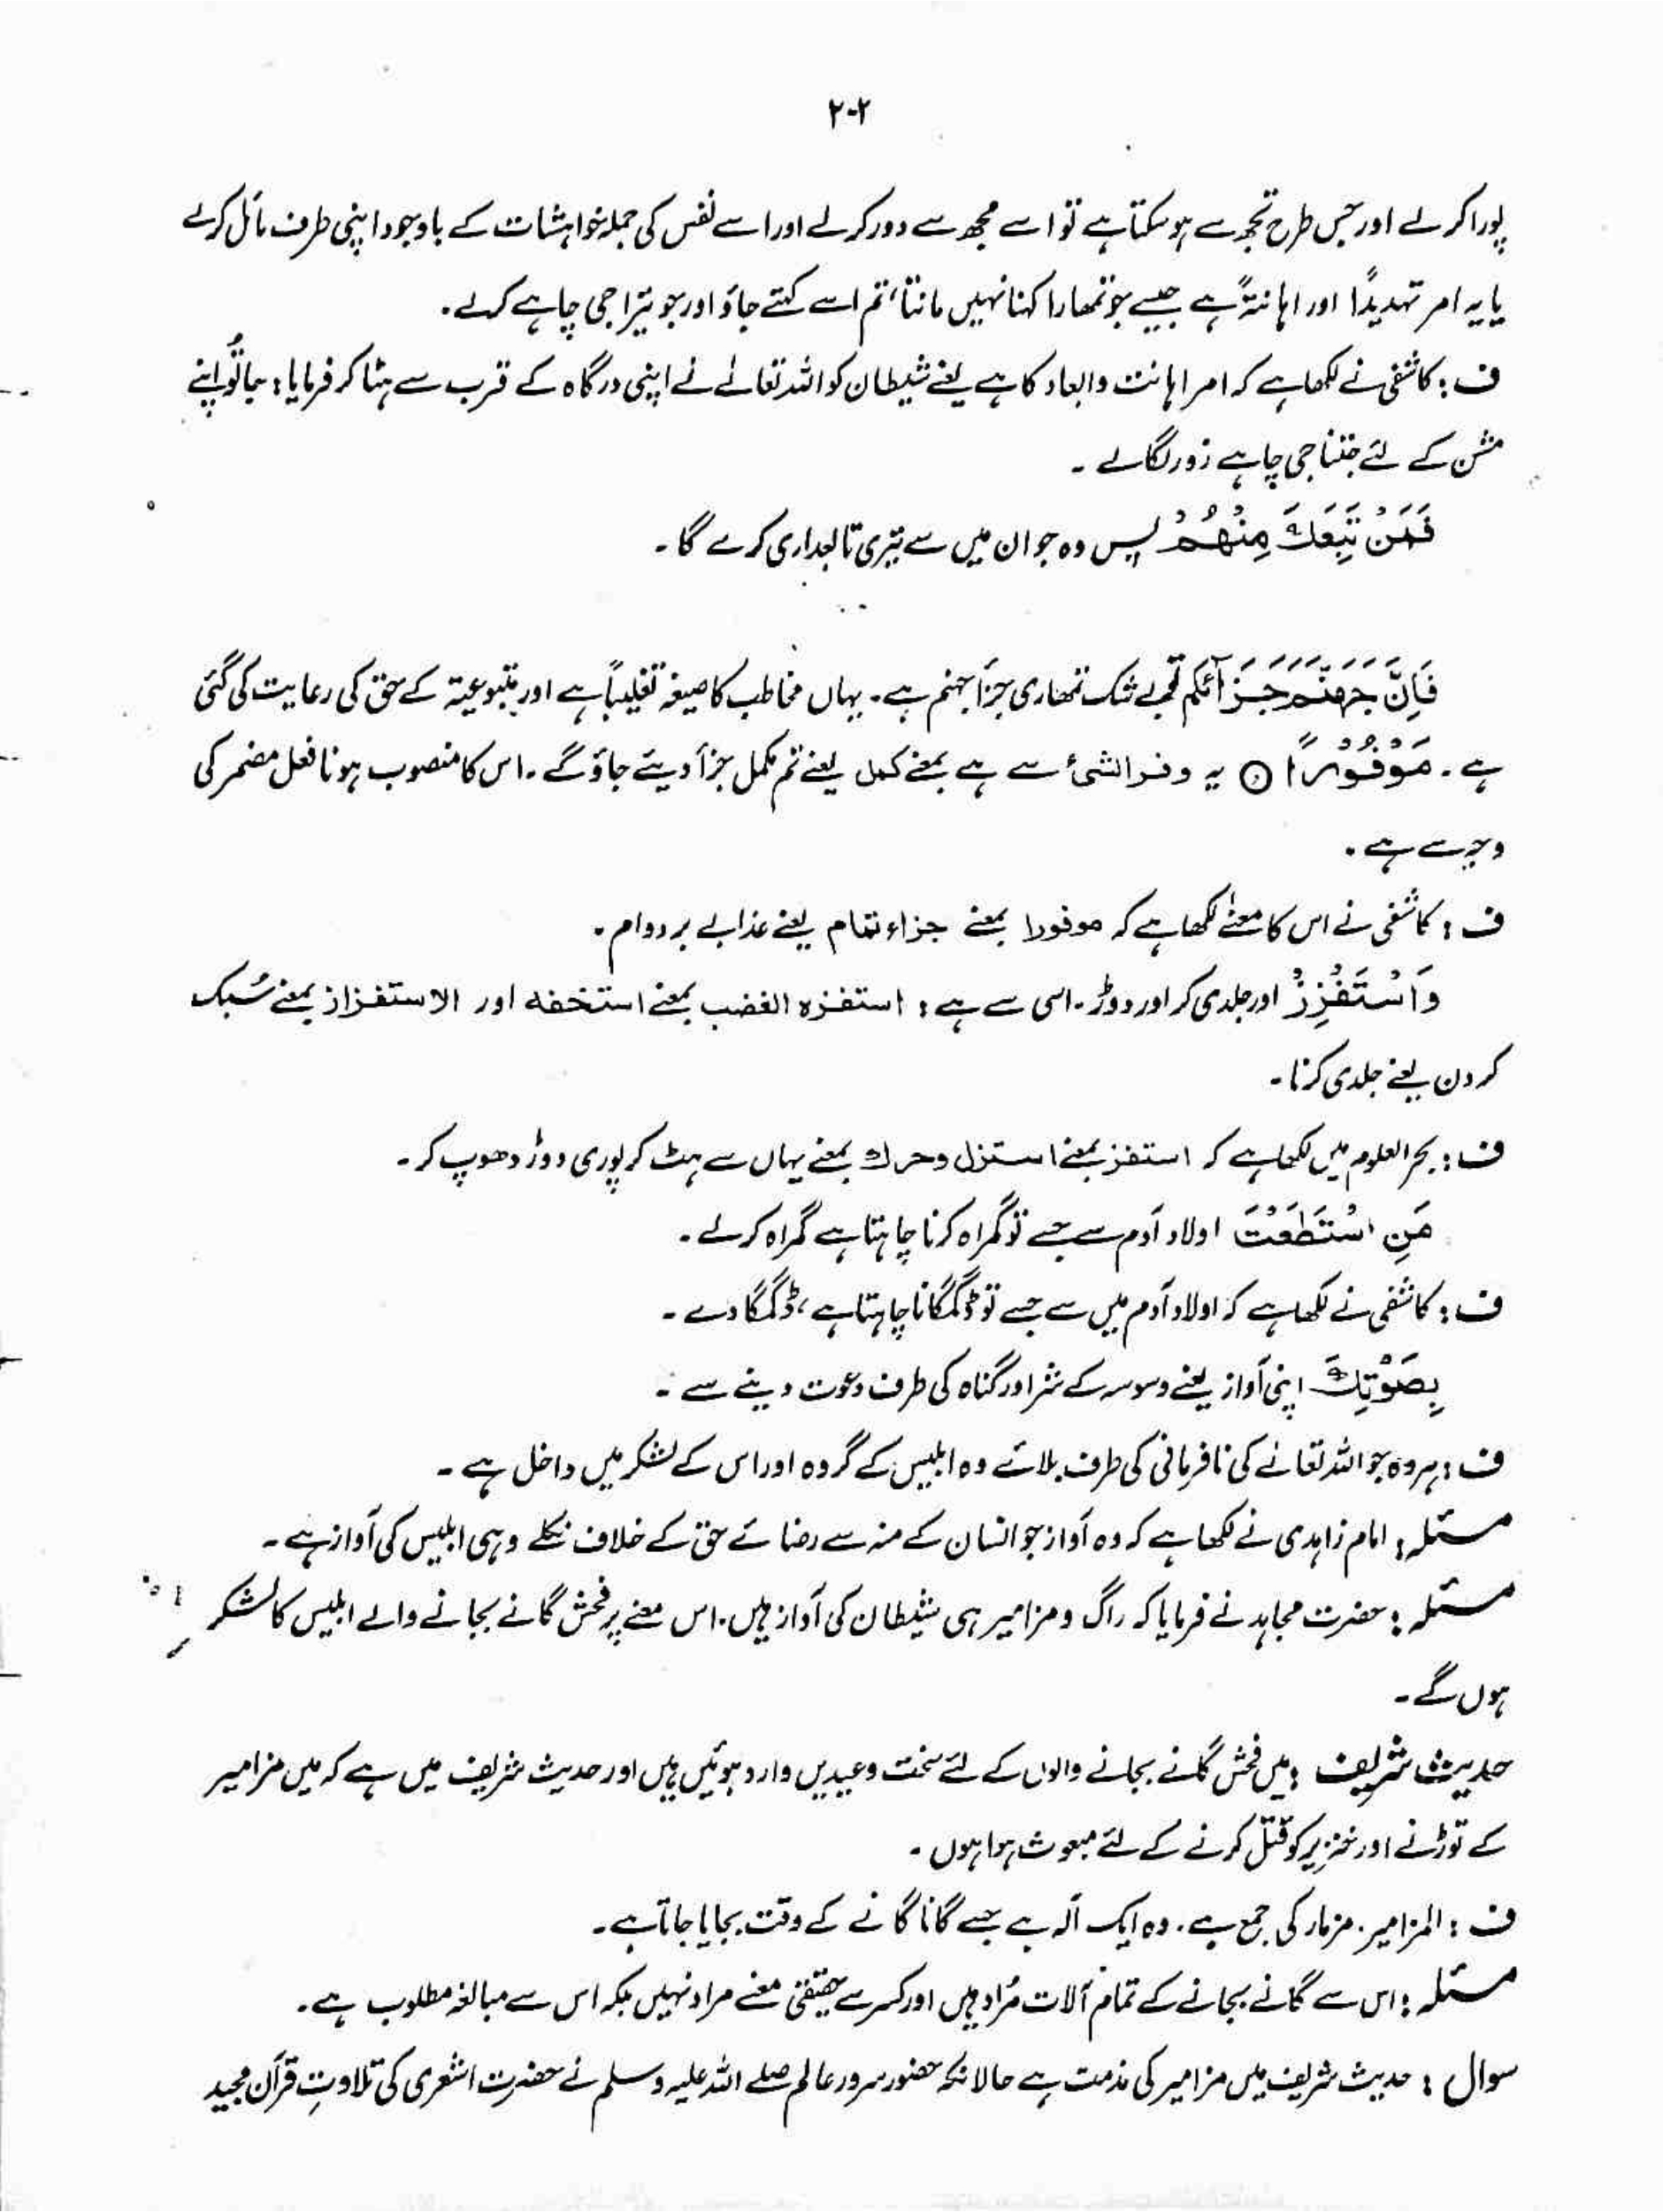 ۲۰۲
پورا کر لے اور جس طرح تجھ سے ہو سکتا ہے تو اسے مجھ سے دور کر لے اور اسے نفس کی جملہ خواہشات کے باوجود اپنی طرف مائل کر لے
یا یہ امر تہدیداً اور اہانتہً ہے جیسے جو تمھارا کہنا نہیں مانتا، تم اسے کہتے جاؤ اور جو تیرا جی چاہے کرلے۔
ف : کاشفی نے لکھا ہے کہ امر اہانت وابعاد کا ہے یعنے شیطان کو اللہ تعالےٰ نے اپنی درگاہ کے قرب سے ہٹا کر فرمایا : جا تُو اپنے
مشن کے لئے جتنا جی چاہے زور لگالے ۔
فَمَنْ تَبِعَكَ مِنْهُمْ پس وہ جو ان میں سے تیری تابعداری کرے گا ۔
فَاِنَّ جَهَنَّمَ جَزَآئُكُم تو بے شک تمھاری جزا جہنم ہے ۔ یہاں مخاطب کا صیغہ تغلیباً ہے اور متبوعیۃ کے حق کی رعایت کی گئی
ہے ۔ مَوْفُوْرًا ○ یہ وفر الشیٔ سے ہے بمعنے کمل یعنے تم مکمل جزأ دیئے جاؤ گے ۔ اس کا منصوب ہونا فعل مضمر کی
وجہ سے ہے ۔
ف : کاشفی نے اس کا معنےٰ لکھا ہے کہ موفورا بمعنے جزاء تمام یعنے عذابے بردوام ۔
وَاسْتَفْزِزْ اور جلدی کر اور دوڑ ۔ اسی سے ہے : استفزه الغضب بمعنے استخفه اور الاستفزاز بمعنے سُبک
کردن یعنے جلدی کرنا ۔
ف : بحر العلوم میں لکھا ہے کہ استفز بمعنے استزل وحرك بمعنے یہاں سے ہٹ کر پوری دوڑ دھوپ کر ۔
مَنِ اسْتَطَعْتَ اولاد آدم سے جسے تو گمراہ کرنا چاہتا ہے گمراہ کرلے ۔
ف : کاشفی نے لکھا ہے کہ اولاد آدم میں سے جسے تو ڈگمگانا چاہتا ہے، ڈگمگا دے ۔
بِصَوْتِكَ اپنی آواز یعنے وسوسہ کے شر اور گناہ کی طرف دعوت دینے سے ۔
ف : ہر وہ جو اللہ تعالےٰ کی نافرمانی کی طرف بلائے وہ ابلیس کے گروہ اور اس کے لشکر میں داخل ہے ۔
مسئلہ : امام زاہدی نے لکھا ہے کہ وہ آواز جو انسان کے منہ سے رضائے حق کے خلاف نکلے وہی ابلیس کی آواز ہے ۔
مسئلہ : حضرت مجاہد نے فرمایا کہ راگ و مزامیر ہی شیطان کی آواز ہیں ۔ اس معنے پر فحش گانے بجانے والے ابلیس کا لشکر
ہوں گے ۔
حدیث شریف : میں فحش گانے بجانے والوں کے لئے سخت وعیدیں وارد ہوئیں ہیں اور حدیث شریف میں ہے کہ میں مزامیر
کے توڑنے اور خنزیر کو قتل کرنے کے لئے مبعوث ہوا ہوں ۔
ف : المزامیر ۔ مزمار کی جمع ہے ۔ وہ ایک آلہ ہے جسے گانا گانے کے وقت بجایا جاتا ہے ۔
مسئلہ : اس سے گانے بجانے کے تمام آلات مُراد ہیں اور کسر سے حقیقی معنے مراد نہیں بلکہ اس سے مبالغہ مطلوب ہے ۔
سوال : حدیث شریف میں مزامیر کی مذمت ہے حالانکہ حضور سرور عالم صلے اللہ علیہ وسلم نے حضرت اشعری کی تلاوتِ قرآن مجید